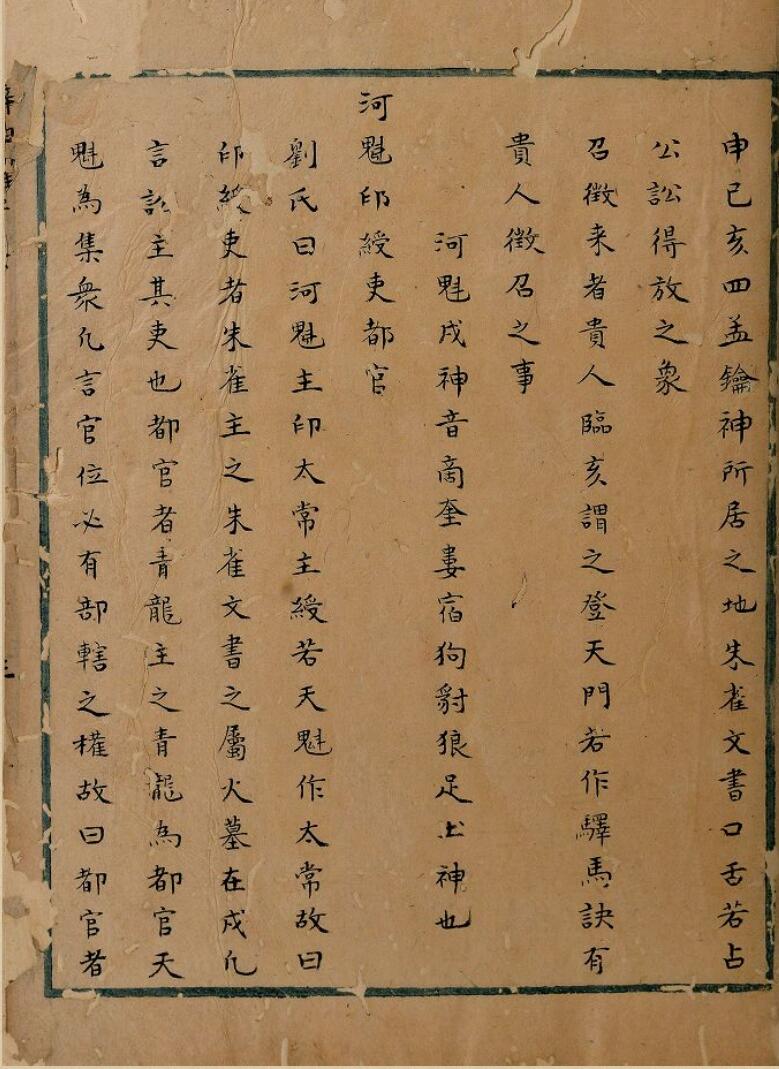 申巳亥四孟鑰神所居之地朱雀文書口舌若占
公訟得放之象
召徴来者貴人臨亥謂之登天門若作驛馬訣有
貴人徴召之事
河魁戌神音商奎婁宿狗豺狼足土神也
河魁印綬吏都官
劉氏曰河魁主印太常主綬若天魁作太常故曰
印綬吏者朱雀主之朱雀文書之屬火墓在戌凢
言訟主其吏也都官者青龍主之青龍為都官天
魁為集衆凢言官位必有部轄之權故曰都官者